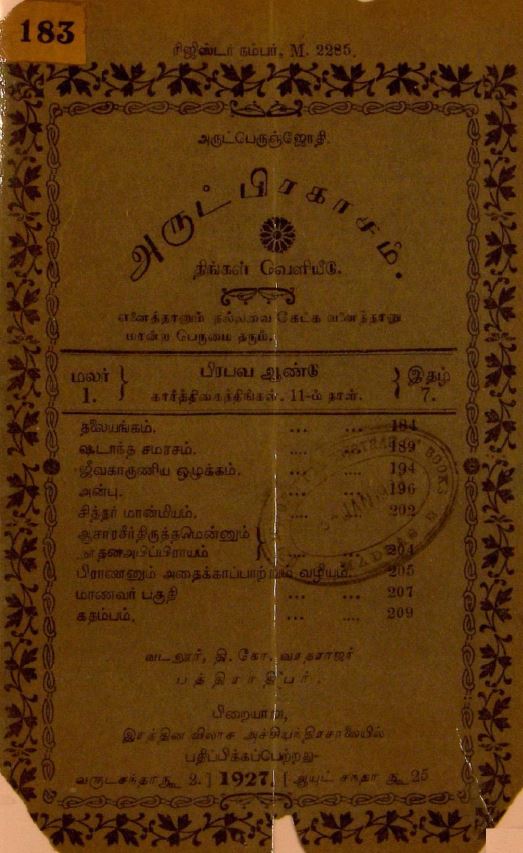 183
ரிஜிஸ்டர் நம்பர், M. 2285.
அருட்பெருஞ்ஜோதி.
அருட்பிரகாசம்.
திங்கள் வெளியீடு.
எனைத்தானும் நல்லவை கேட்க வனைத்தானு
மான்ற பெருமை தரும்.
மலர் 1. } பிரபவ ஆண்டு { இதழ் 7.
கார்த்திகைத்திங்கள். 11-ம் நாள்.
தலையங்கம். ... ... 184
ஷடாந்த சமரசம். .... ... 189
ஜீவகாருணிய ஒழுக்கம். .... ... 194
அன்பு. ... ... 196
சித்தர் மான்மியம். .... ... 202
ஆசாரசீர்திருத்தமென்னும் }
நூதனஅபிப்பிராயம் .... ... 204
பிராணனும் அதைக்காப்பாற்றும் வழியும். 205
மாணவர் பகுதி ... ... 207
கதம்பம். ... .... 209
வடலூர், தி. கோ. வரதராஜர்
பத்திராதிபர்.
பிறையாறு,
இரத்தின விலாச அச்சியந்திரசாலையில்
பதிப்பிக்கப்பெற்றது-
வருடசந்தா ரூ 2. ] 1927. [ ஆயுட் சந்தா ரூ 25